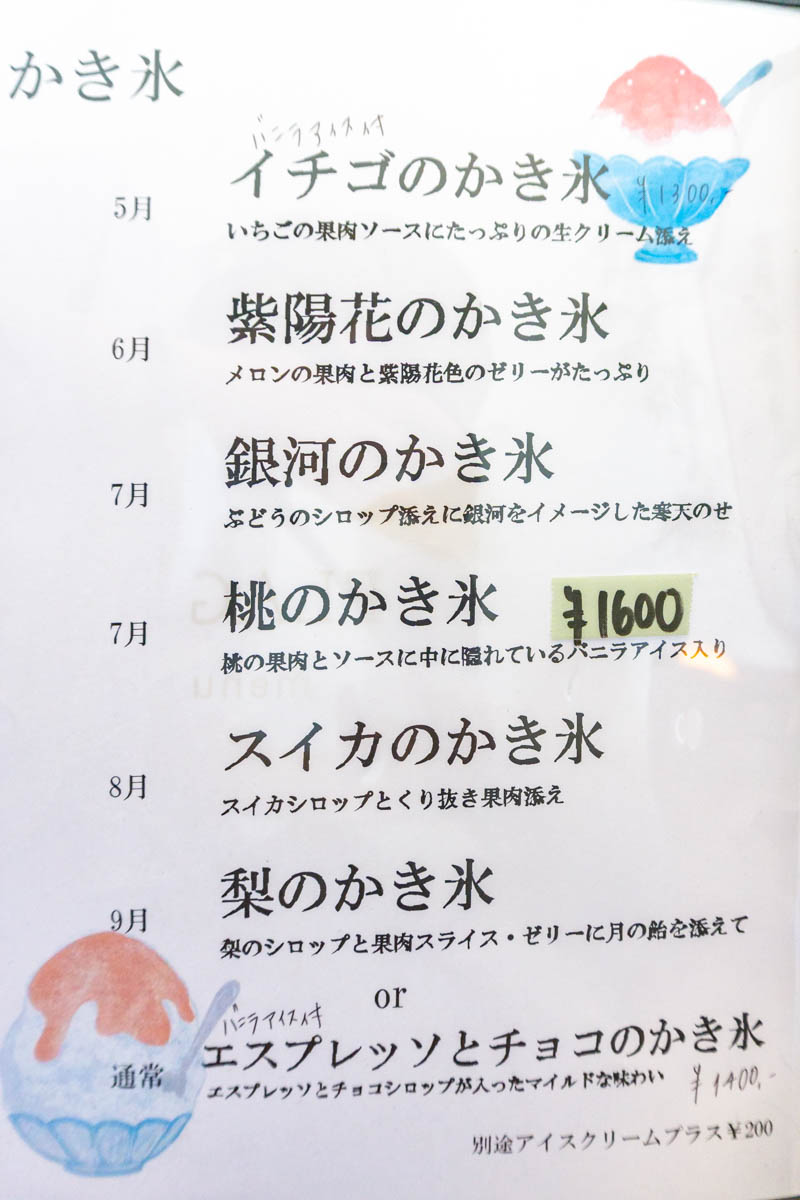 かき氷
バニラアイス付
イチゴのかき氷 ¥1300,-
5月
いちごの果肉ソースにたっぷりの生クリーム添え
紫陽花のかき氷
6月
メロンの果肉と紫陽花色のゼリーがたっぷり
銀河のかき氷
7月
ぶどうのシロップ添えに銀河をイメージした寒天のせ
桃のかき氷 ¥1600
7月
桃の果肉とソースに中に隠れているバニラアイス入り
スイカのかき氷
8月
スイカシロップとくり抜き果肉添え
梨のかき氷
9月
梨のシロップと果肉スライス・ゼリーに月の飴を添えて
or
バニラアイス付
エスプレッソとチョコのかき氷
通常
エスプレッソとチョコシロップが入ったマイルドな味わい ¥1400,-
別途アイスクリームプラス¥200